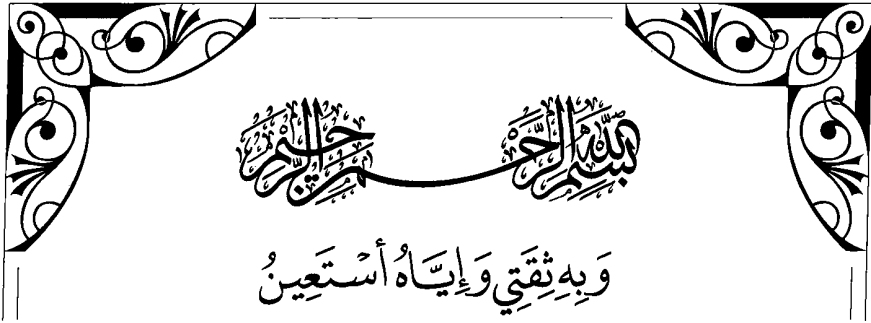 بِسْمِ اللَّهِ الرَّحْمَنِ الرَّحِيمِ
وَبِهِ ثِقَتِي وَإِيَّاهُ أَسْتَعِينُ